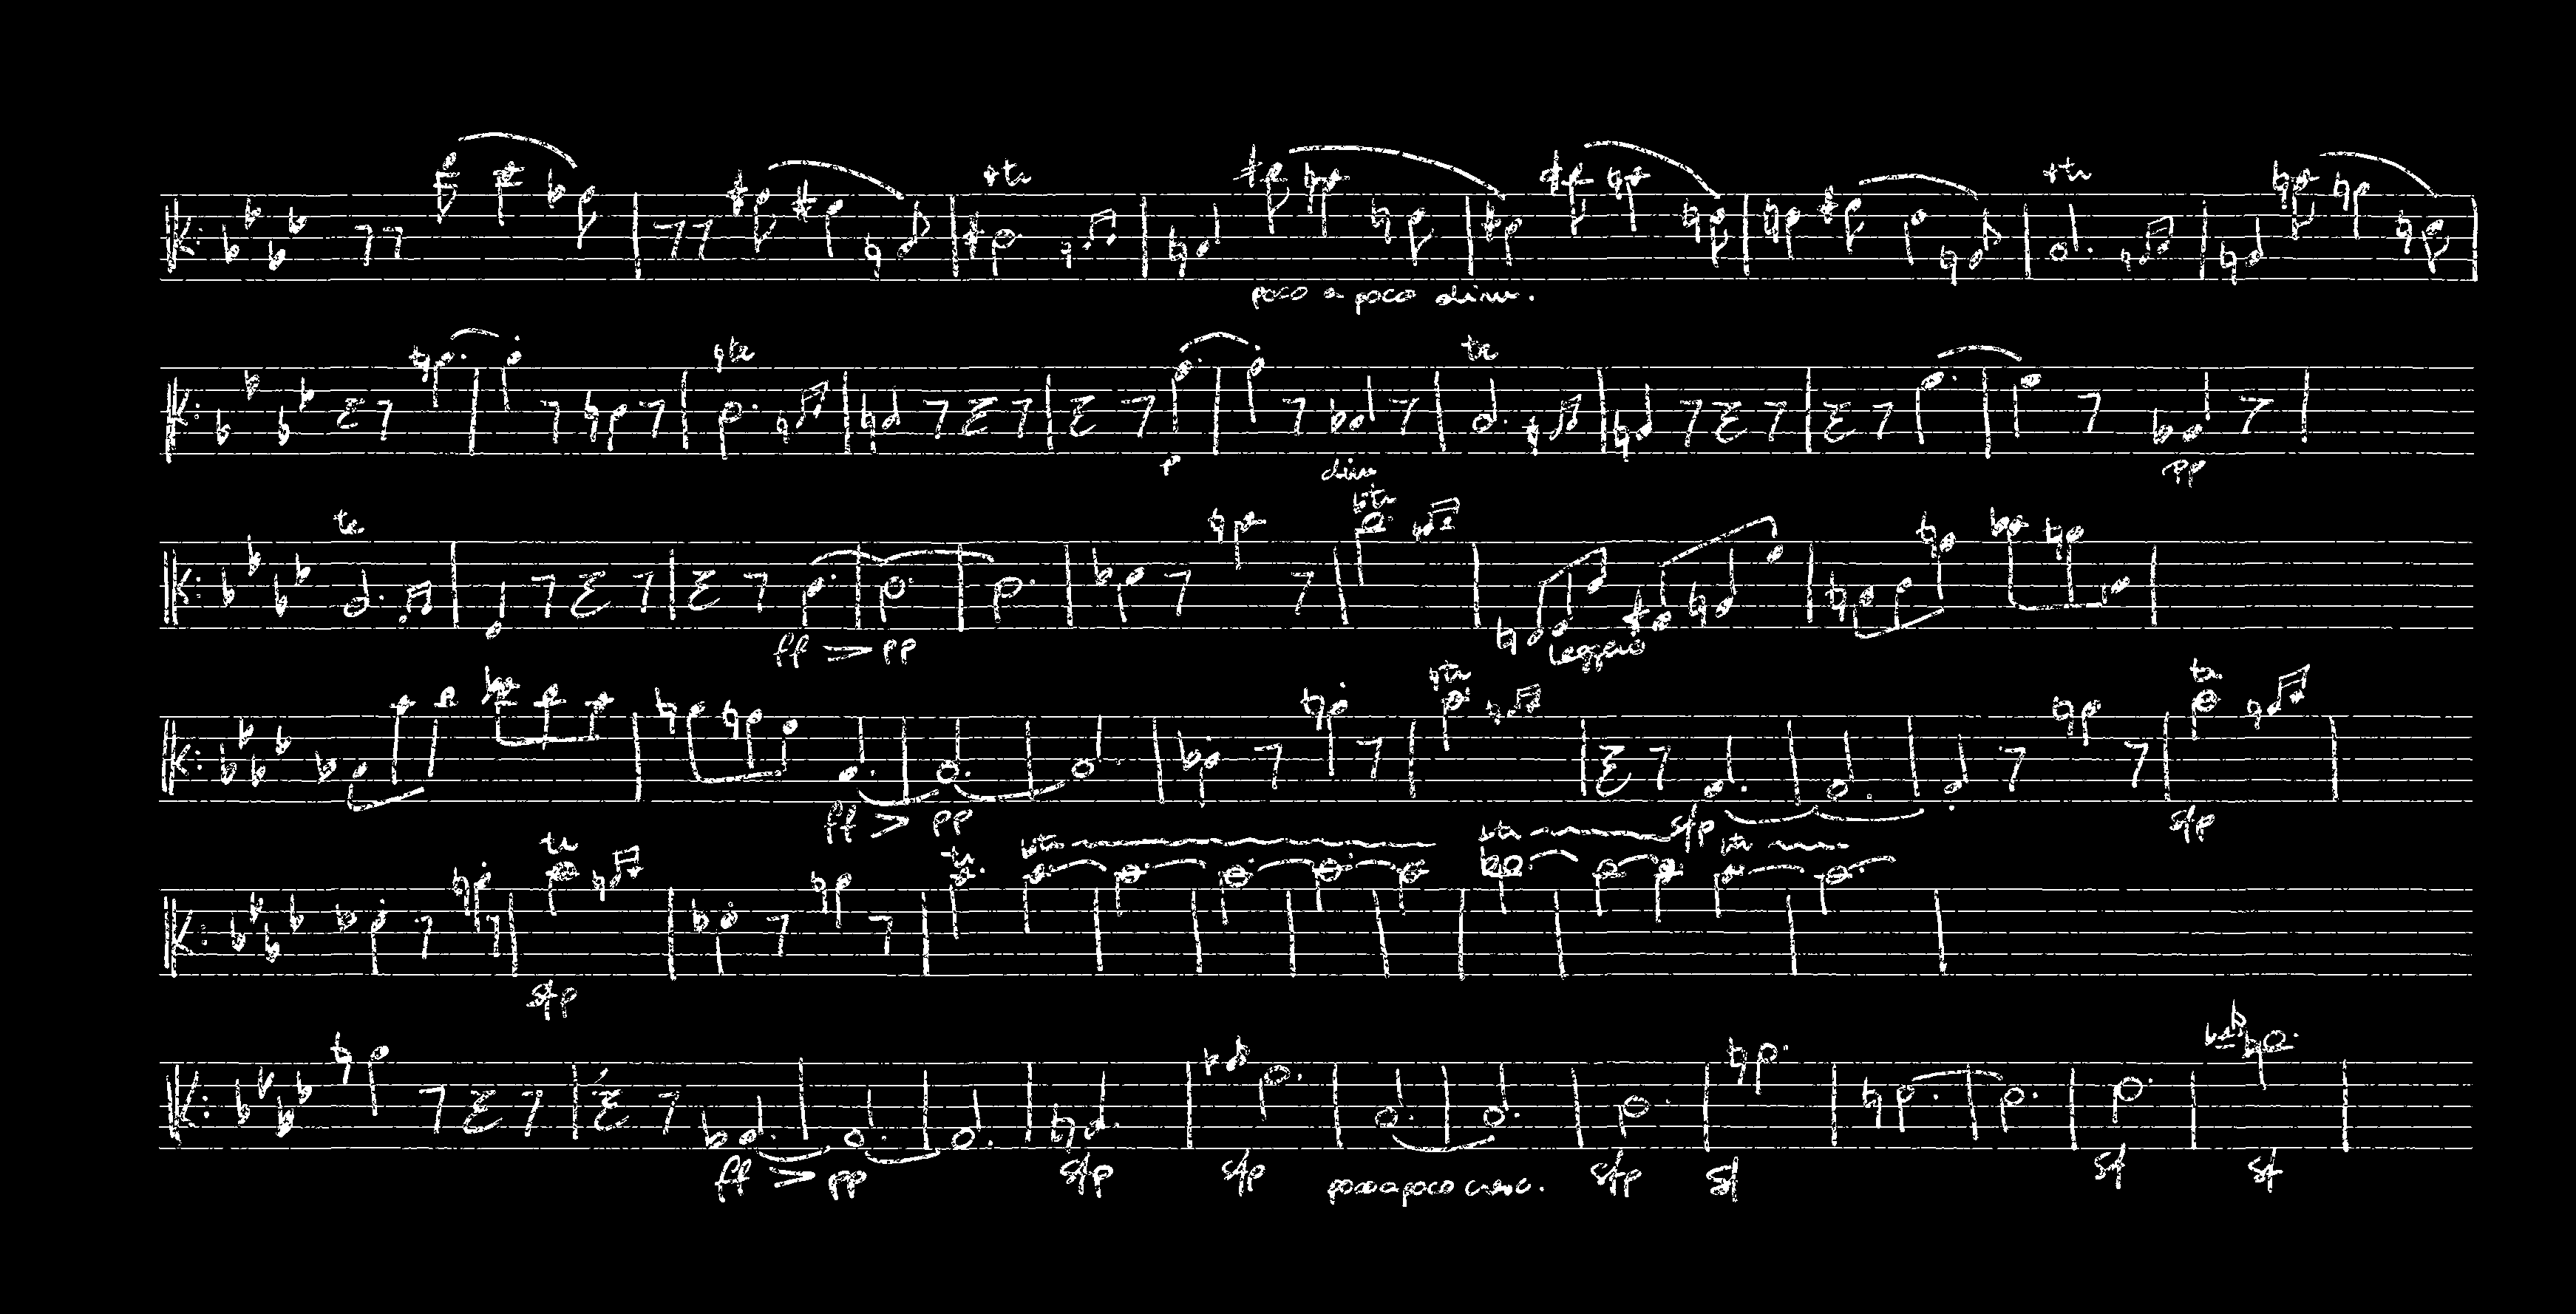 tr tr
poco a poco dim.
tr tr
p dim pp
tr tr
ff pp leggero
tr tr
ff pp sfp sfp
tr tr tr tr tr
sfp
ff pp sfp sfp poco a poco cresc. sfp sf sf sf